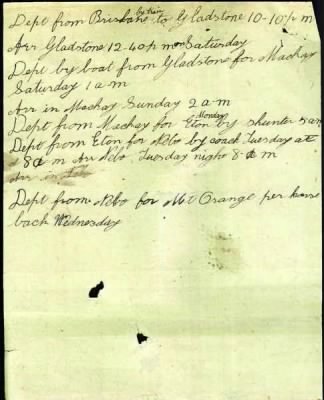 Dept from Brisbane by train to Gladstone 10-10 p m
Arr Gladstone 12.40 p m on Saturday
Dept by boat from Gladstone for Mackay
Saturday 1 a m
Arr in Mackay Sunday 2 a m
Dept from Mackay for Eton Monday by shunter 5 am
Dept from Eton for Nebo by coach Tuesday at
8 a m Arr Nebo Tuesday night 8 a m
Arr in
Dept from Nebo for Mt Orange per horse
back Wednesday